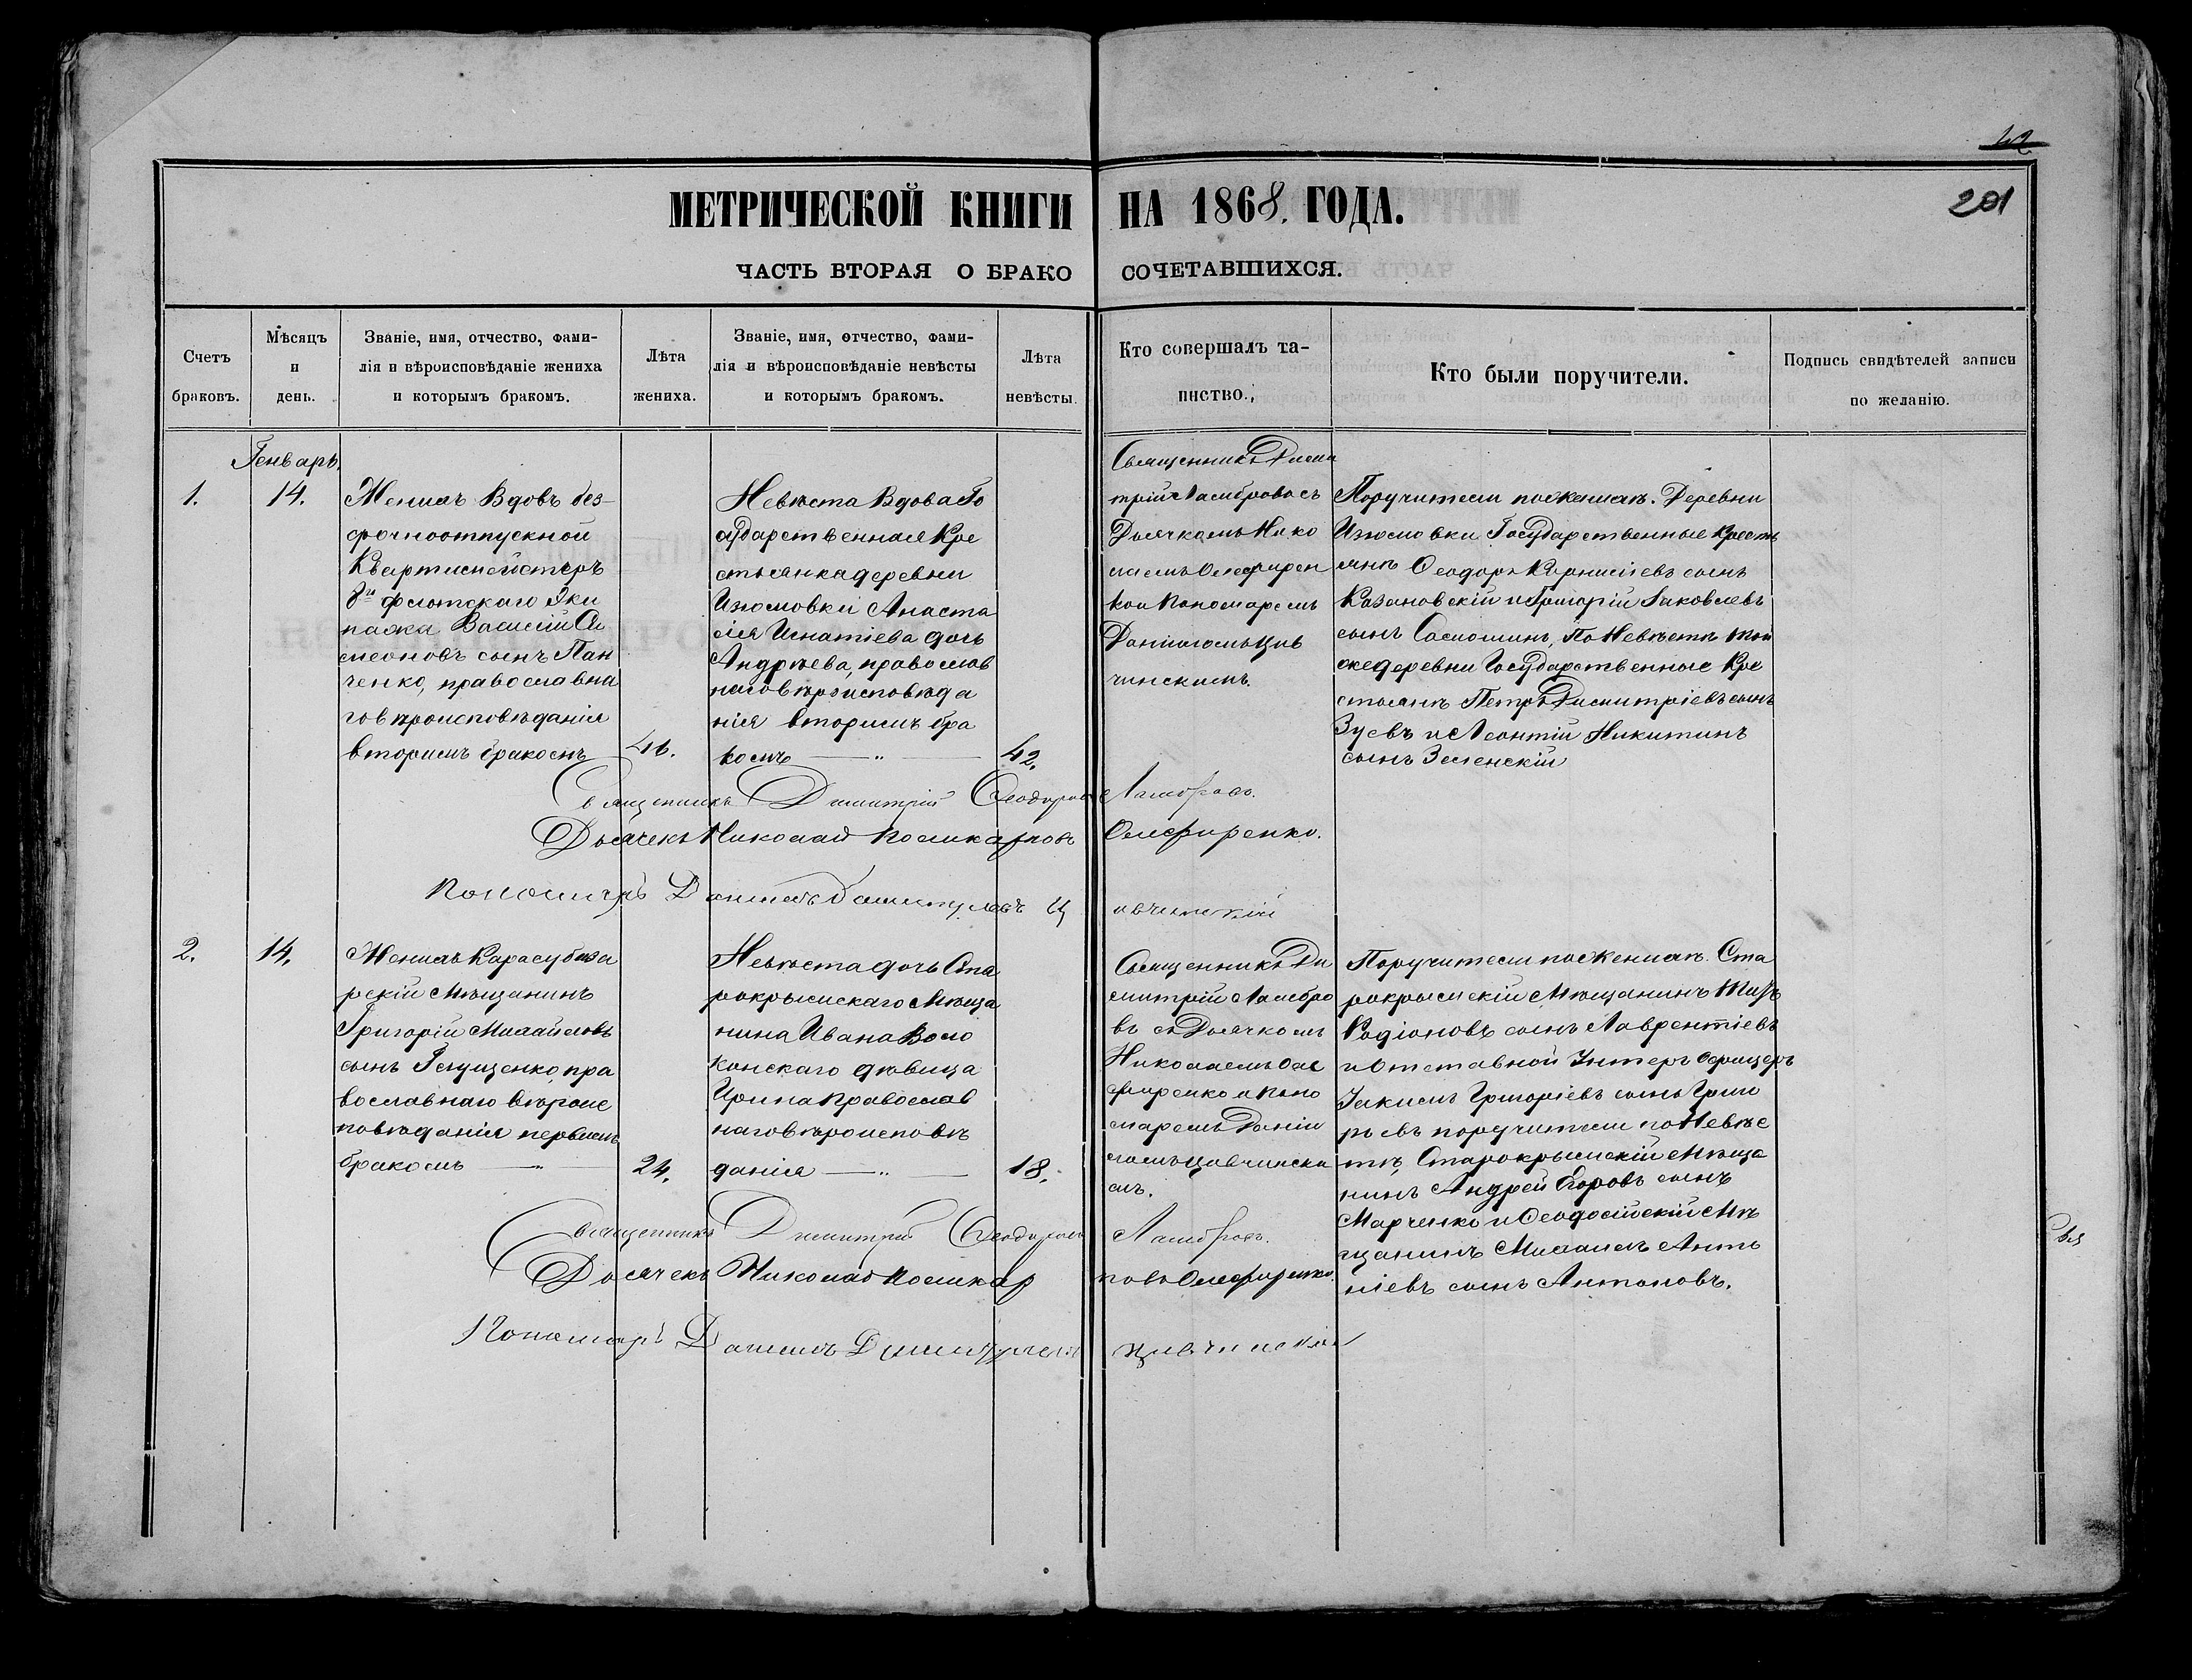 42
МЕТРИЧЕСКОЙ КНИГИ НА 1868. ГОДА.
201
ЧАСТЬ ВТОРАЯ О БРАКОСОЧЕТАВШИХСЯ.
Счетъ
браковъ.
Мѣсяцъ
и
день.
Званіе, имя, отчество, фами-
лія и вѣроисповѣданіе жениха
и которымъ бракомъ.
Лѣта
жениха.
Званіе, имя, отчество, фами-
лія и вѣроисповѣданіе невѣсты
и которымъ бракомъ.
Лѣта
невѣсты.
Кто совершалъ та-
инство.
Кто были поручители.
Подпись свидѣтелей записи
по желанію.
Генварь.
1.
14.
Женихъ Вдовъ без-
срочноотпускной
Квартирмейстеръ
8го флотскаго Эки
пажа Василій Си
меоновъ сынъ Пан
ченко, православна
го вѣроисповѣданія
вторымъ бракомъ
Невѣста Вдова Го
сударственная Кре
стьянка деревни
Изюмовки Анаста
сія Игнатіева дочь
Андрѣева, православ
наго вѣроисповѣда
нія вторымъ бра
комъ — „ —
42.
Священникъ Дими
трій Ламбровъ съ
Дьячкомъ Нико
лаемъ Олефирен
ко и Пономаремъ
Даніиломъ Цив
чинскимъ.
Поручители по Женихѣ. Деревни
Изюмовки Государственные Кресть
янѣ Ѳеодоръ Корниліевъ сынъ
Казановскій и Григорій Іаковлевъ
сынъ Самошинъ, По Невѣстѣ той
же деревни Государственные Кре
стьянѣ Петръ Димитріевъ сынъ
Зуевъ и Леонтій Никитинъ
сынъ Зеленскій
Священникъ Димитрій Ѳеодоровъ Ламбровъ.
Дьячекъ Николай Поликарповъ Олефиренко.
Пономарь Даніилъ Димитріевъ Цивчинскій
2.
14.
Женихъ Карасубаза
рскій Мѣщанинъ
Григорій Михайловъ
сынъ Глущенко, пра
вославнаго вѣроис
повѣданія первымъ
бракомъ — „ —
24.
Невѣста дочь Ста
рокрымскаго Мѣща
нина Ивана Воло
конскаго дѣвица
Ирина Православ
наго вѣроисповѣ
данія — „ —
18.
Священникъ Ди
митрій Ламбро
въ съ Дьячкомъ
Николаемъ Оле
фиренко и Поно
маремъ Даніи
ломъ Цивчински
мъ.
Поручители по Женихѣ. Ста
рокрымскій Мѣщанинъ
Родіоновъ сынъ Лаврентіевъ
и Отставной Унтеръ Офицеръ
Іакимъ Григоріевъ сынъ Григо
рьевъ поручители по Невѣс
тѣ, Старокрымскій Мѣща
нинъ Андрей Егоровъ сынъ
Марченко и Ѳеодосійскій Мѣ
щанинъ Михаилъ Анто
ніевъ сынъ Антоновъ.
Священникъ Димитрій Ѳеодоровъ Ламбровъ.
Дьячекъ Николай Поликарповъ Олефиренко.
Пономарь Даніилъ Димитріевъ Цивчинскій